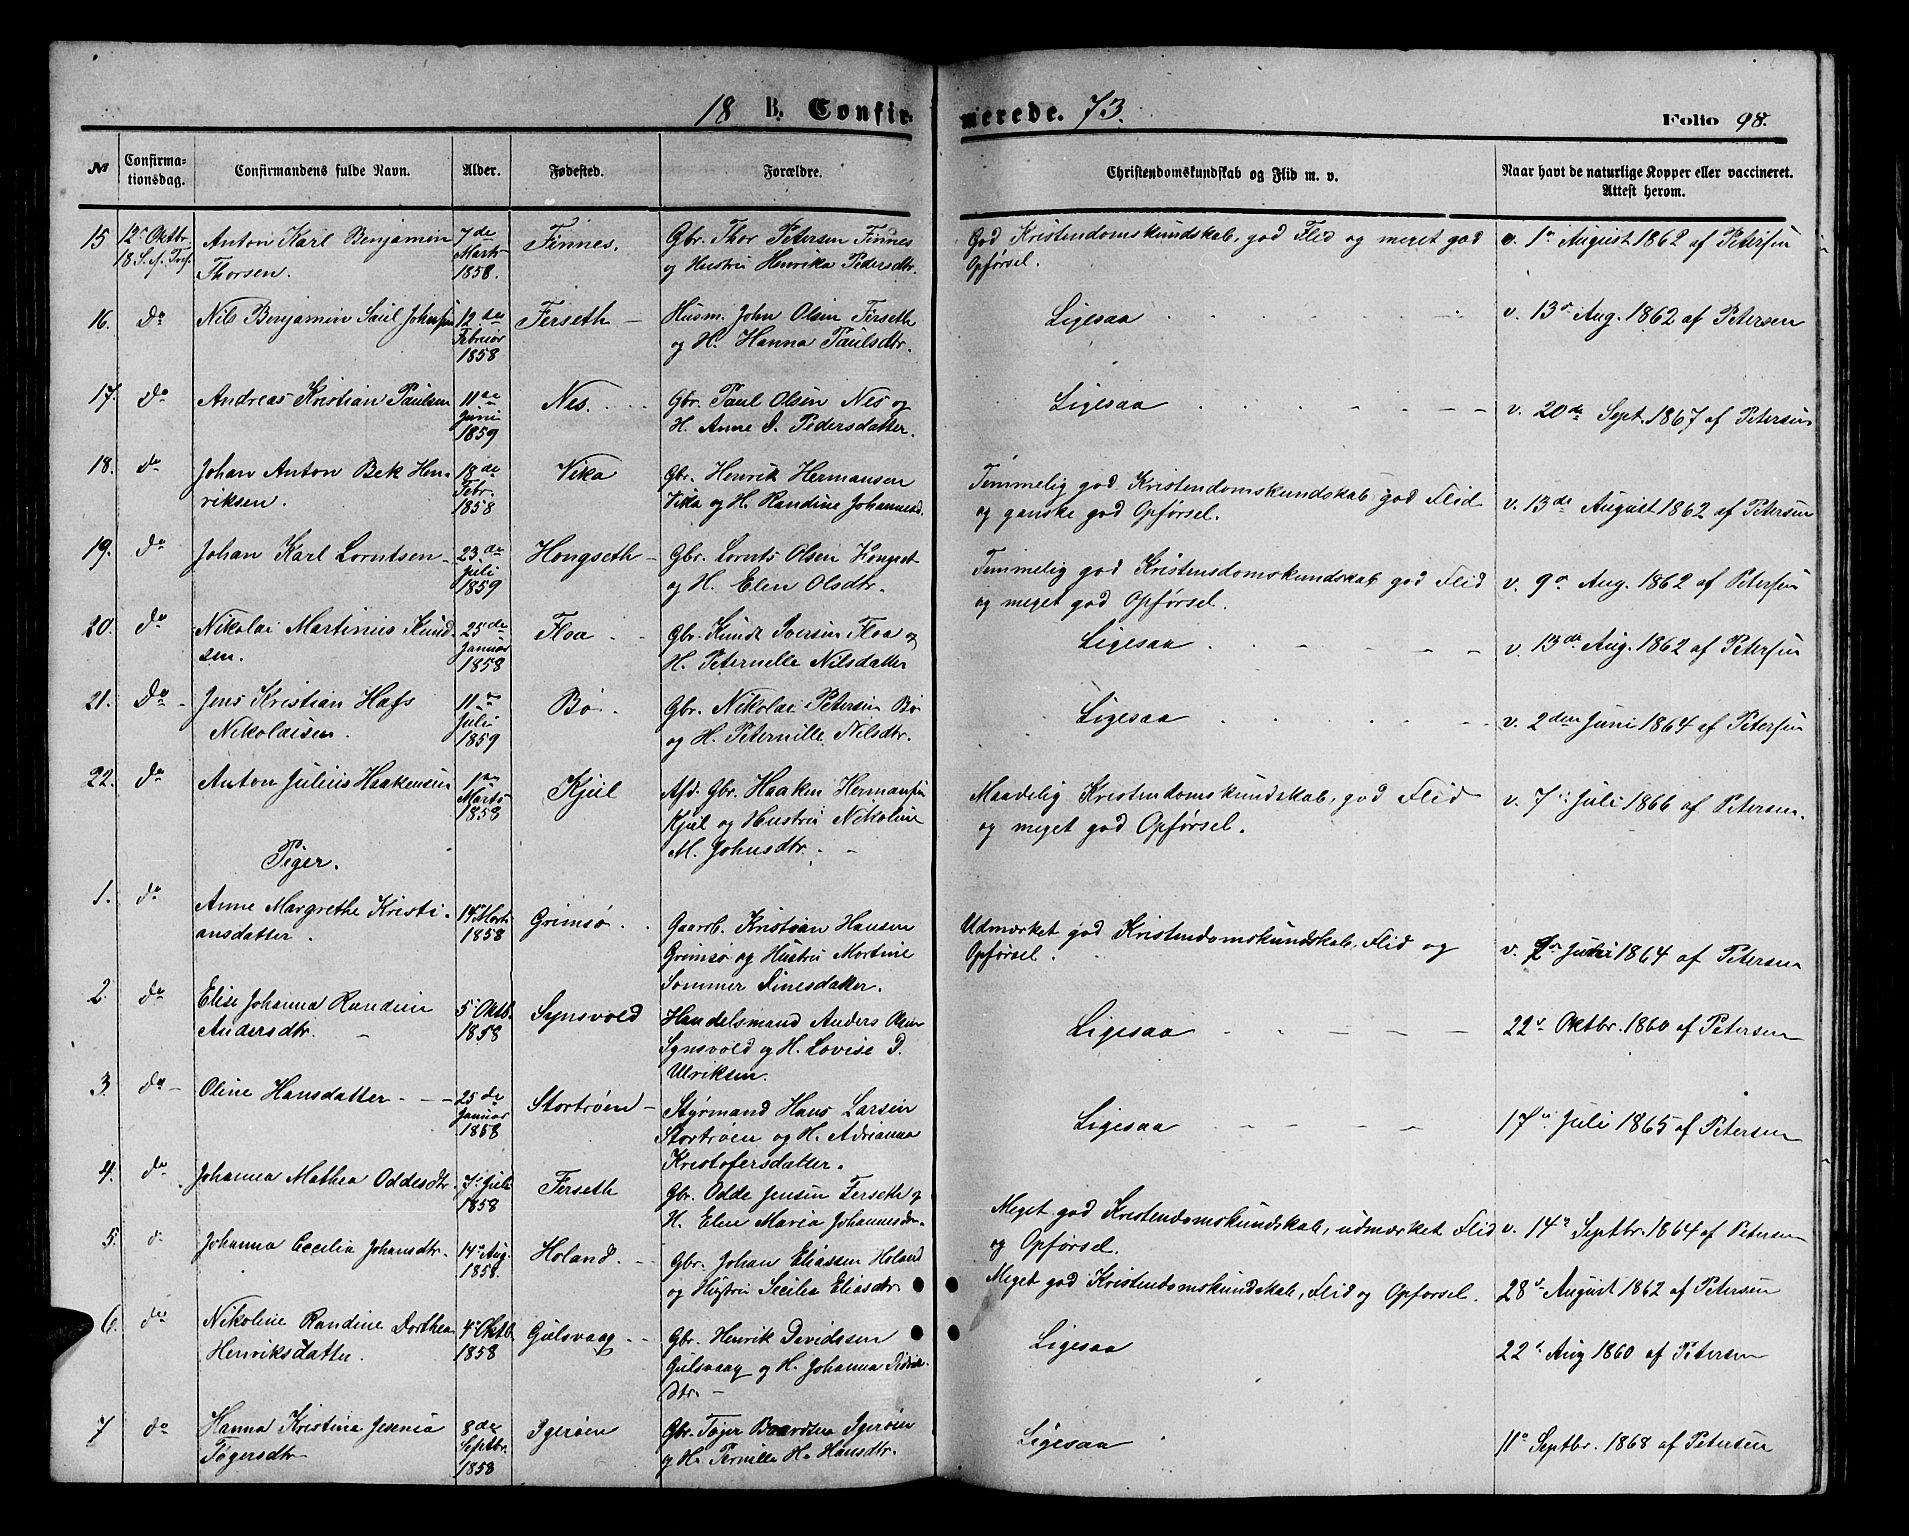 18 B. Confirmerede. 73.
Folio 98.
№ Confirmationsdag. Confirmandens fulde Navn. Alder. Fødested. Forældre. Christendomskundskab og Flid m. v. Naar havt de naturlige Kopper eller vaccineret. Attest herom.
15 12te Oktbr. Anton Karl Benjamin 7de Finnes. Gbr. Thor Petersen Finnes God Kristendomskundskab, god Flid og meget god v. 1 August 1862 af Petersen
18 S. e. Tref. Thorsen. Marts og Hustru Henrika Pedersdtr. Opførsel.
1858.
16. Do Nils Benjamin Saul Johnsen 12te Ferseth Husm. John Olsen Ferseth Ligesaa v. 13 Aug. 1862 af Petersen
Februar og H. Hanna Paulsdtr.
1858
17. Do Andreas Kristian Paulsen 11te Nes. Gbr. Paul Olsen Nes og Ligesaa v. 20de Sept. 1867 af Petersen
Juni H. Anne S. Pedersdatter.
1859
18. do Johan Anton Bek Hen- 18de Vika Gbr. Henrik Hermansen Temmelig god Kristendomskundskab, god Flid v. 13de August 1862 af Petersen
riksen. Febr. Vika og H. Randine Johannesd. og ganske god Opførsel.
1858
19. do Johan Karl Lorntsen 23de Hongseth Gbr. Lornts Olsen Hongset Temmelig god Kristendomskundskab god Flid v. 9 Aug. 1862 af Petersen
Juli og H. Elen Olsdtr. og meget god Opførsel.
1859
20. do Nikolai Martinus Knud- 25de Floa Gbr. Knudt Iversen Floa og Ligesaa v. 13de Aug. 1862 af Petersen
sen. Januar H. Peternelle Nilsdatter
1858
21. Do Jens Kristian Hafs 11te Bø Gbr. Nikolai Petersen Bø Ligesaa v. 2den Juni 1864 af Petersen
Nikolaisen. Juli og H. Peternille Nilsdtr.
1859
22. do Anton Julius Haakensen 1ste Kjul Afd. Gbr. Haaken Hermansen Maadelig Kristendomskundskab, god Flid v. 7 Juli 1866 af Petersen.
Marts Kjul og Hustru Nikoline og meget god Opførsel.
1858 M. Johnsdtr.
Piger.
1. do Anne Margrethe Kristi- 14 Marts Grimsø. Gaarb. Kristian Hansen Udmærket god Kristendomskundskab, Flid og v. 1864 af Petersen
ansdatter. 1858 Grimsø og Hustru Martine Opførsel.
Sommer Dinesdatter.
2. do Elise Johanna Randine 5 Oktb. Synsvold Handelsmand Anders Olsen Ligesaa 22 Oktbr. 1860 af Petersen
Andersdtr. 1858 Synsvold og H. Lovise D.
Ulriksen.
3. do Oline Hansdatter 25de Stortrøen Styrmand Hans Larsen Ligesaa 17 Juli 1865 af Petersen
Januar Stortrøen og H. Adrianna
1858 Kristofersdatter.
4. do Johanna Mathea Oddesdtr. 7 Juli Ferseth Gbr. Odde Jensen Ferseth og Meget god Kristendomskundskab, udmærket Flid v. 14 Septbr. 1864 af Petersen
1858 H. Elen Maria Johannesdtr. og Opførsel.
5. d Johanna Cecilia Johansdtr. 14 Aug. Holand. Gbr. Johan Eliassen Holand Meget god Kristendomskundskab, Flid og Opførsel. 28 August 1862 af Petersen
1858. og Hustru Secilia Eliasdtr.
6. do Nikoline Randine Dorthea 4 Oktb. Gulsvaag Gbr. Henrik Davidssen Ligesaa 22 Aug 1860 af Petersen
Henriksdatter 1858 Gulsvaag og H. Johanna
dtr.
7 do Hanna Kristine Jesenia 8de Igerøen Gbr. Tøger Baardsen Igerøen Ligesaa 11 Septbr. 1868 af Petersen
Tøgersdtr Septbr. og H. Pernille H. Hansdtr.
1858